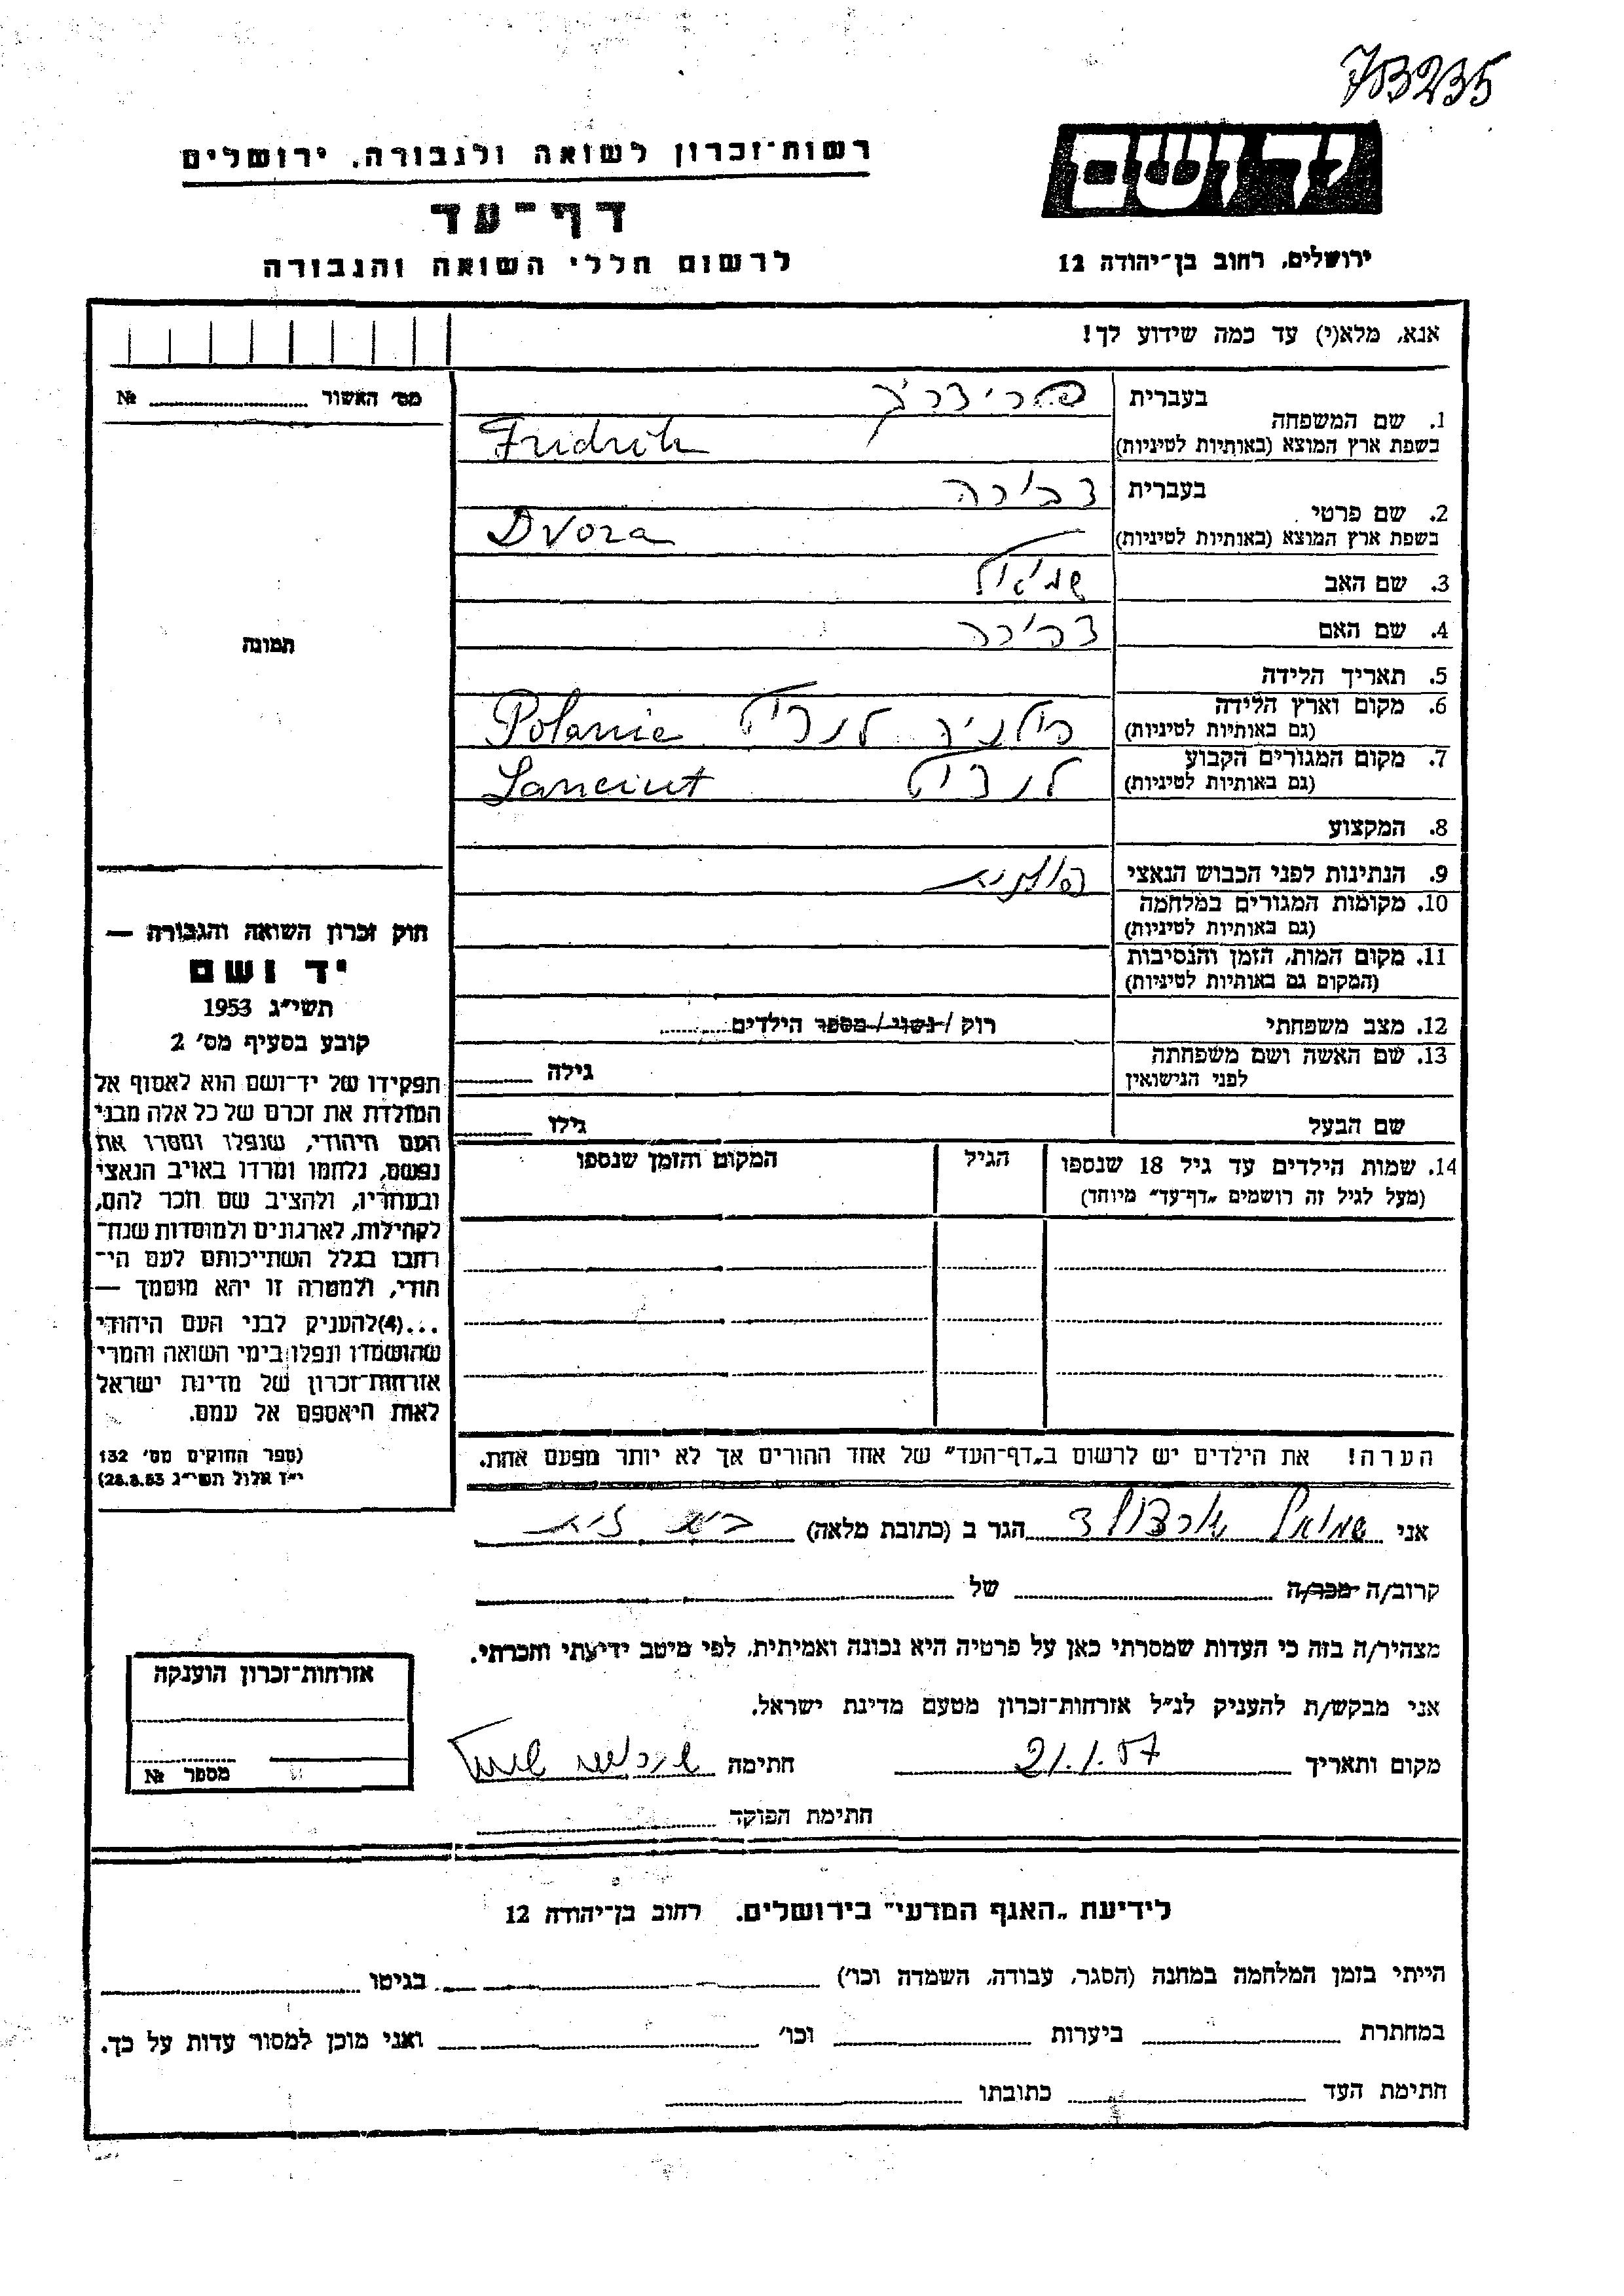 703235
יד ושם
רשות־זכרון לשואה ולגבורה, ירושלים
דף־עד
לרשום חללי השואה והגבורה
ירושלים, רחוב בן־יהודה 12
אנא, מלא(י) עד כמה שידוע לך!
מס׳ האשור № 
בעברית פרידריך
1. שם המשפחה
בשפת ארץ המוצא (באותיות לטיניות) Fridrih
בעברית דבורה
2. שם פרטי
בשפת ארץ המוצא (באותיות לטיניות) Dvora
3. שם האב
4. שם האם
תמונה
5. תאריך הלידה
6. מקום וארץ הלידה
(גם באותיות לטיניות) Polanie
7. מקום המגורים הקבוע
(גם באותיות לטיניות) Lanciut
8. המקצוע
9. הנתינות לפני הכבוש הנאצי פולנית
10. מקומות המגורים במלחמה
(גם באותיות לטיניות)
11. מקום המות, הזמן והנסיבות
(המקום גם באותיות לטיניות)
12. מצב משפחתי רוק / נשוי / מספר הילדים
13. שם האשה ושם משפחתה
לפני הנישואין גילה
שם הבעל גילו
14. שמות הילדים עד גיל 18 שנספו הגיל המקום והזמן שנספו
(מעל לגיל זה רושמים „דף־עד״ מיוחד)
חוק זכרון השואה והגבורה —
יד ושם
תשי״ג 1953
קובע בסעיף מס׳ 2
תפקידו של יד־ושם הוא לאסוף אל
המולדת את זכרם של כל אלה מבני
העם היהודי, שנפלו ומסרו את
נפשם, נלחמו ומרדו באויב הנאצי
ובעוזריו, ולהציב שם וזכר להם,
לקהילות, לארגונים ולמוסדות שנח־
רבו בגלל השתייכותם לעם הי־
הודי, ולמטרה זו יהא מוסמך —
...(4)להעניק לבני העם היהודי
שהושמדו ונפלו בימי השואה והמרי
אזרחות־זכרון של מדינת ישראל
לאות היאספם אל עמם.
(ספר החוקים מס׳ 132
י״ז אלול תשי״ג 28.8.53)
הערה! את הילדים יש לרשום ב„דף־העד״ של אחד ההורים אך לא יותר מפעם אחת.
אני שמואל הגר ב (כתובת מלאה)
קרוב/ה מכר/ה של
מצהיר/ה בזה כי העדות שמסרתי כאן על פרטיה היא נכונה ואמיתית, לפי מיטב ידיעתי והכרתי.
אני מבקש/ת להעניק לנ״ל אזרחות־זכרון מטעם מדינת ישראל.
מקום ותאריך 21.1.57 חתימה
חתימת הפוקד
אזרחות־זכרון הוענקה
מספר №
לידיעת „האגף המדעי״ בירושלים. רחוב בן־יהודה 12
הייתי בזמן המלחמה במחנה (הסגר, עבודה, השמדה וכו׳) בגיטו
במחתרת ביערות וכו׳ ואני מוכן למסור עדות על כך.
חתימת העד כתובתו